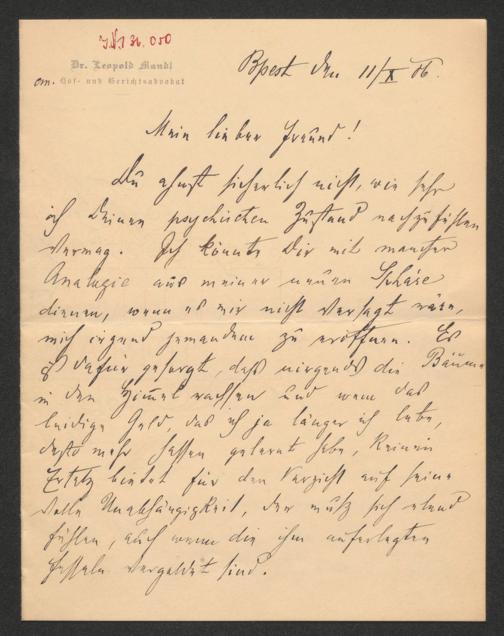 I.N. 31.050
Dr. Leopold Mandl
em. Hof- und Gerichtsadvokat
Bpest den 11/X 06.
Mein lieber Freund!
Du ahnst sicherlich nicht, wie sehr
ich Deinen psychischen Zustand nachzufühlen
vermag. Ich könnte Dir mit mancher
Analogie aus meiner neuen Sphäre
dienen, wenn es mir nicht versagt wäre,
mich irgend jemandem zu eröffnen. Es
ist dafür gesorgt, daß nirgends die Bäume
in den Himmel wachsen und wem das
leidige Geld, das ich ja länger ich lebe,
desto mehr hassen gelernt habe, keinen
Ersatz bietet für den Verzicht auf seine
volle Unabhängigkeit, der muß sich elend
fühlen, auch wenn die ihm auferlegten
Fesseln vergoldet sind.